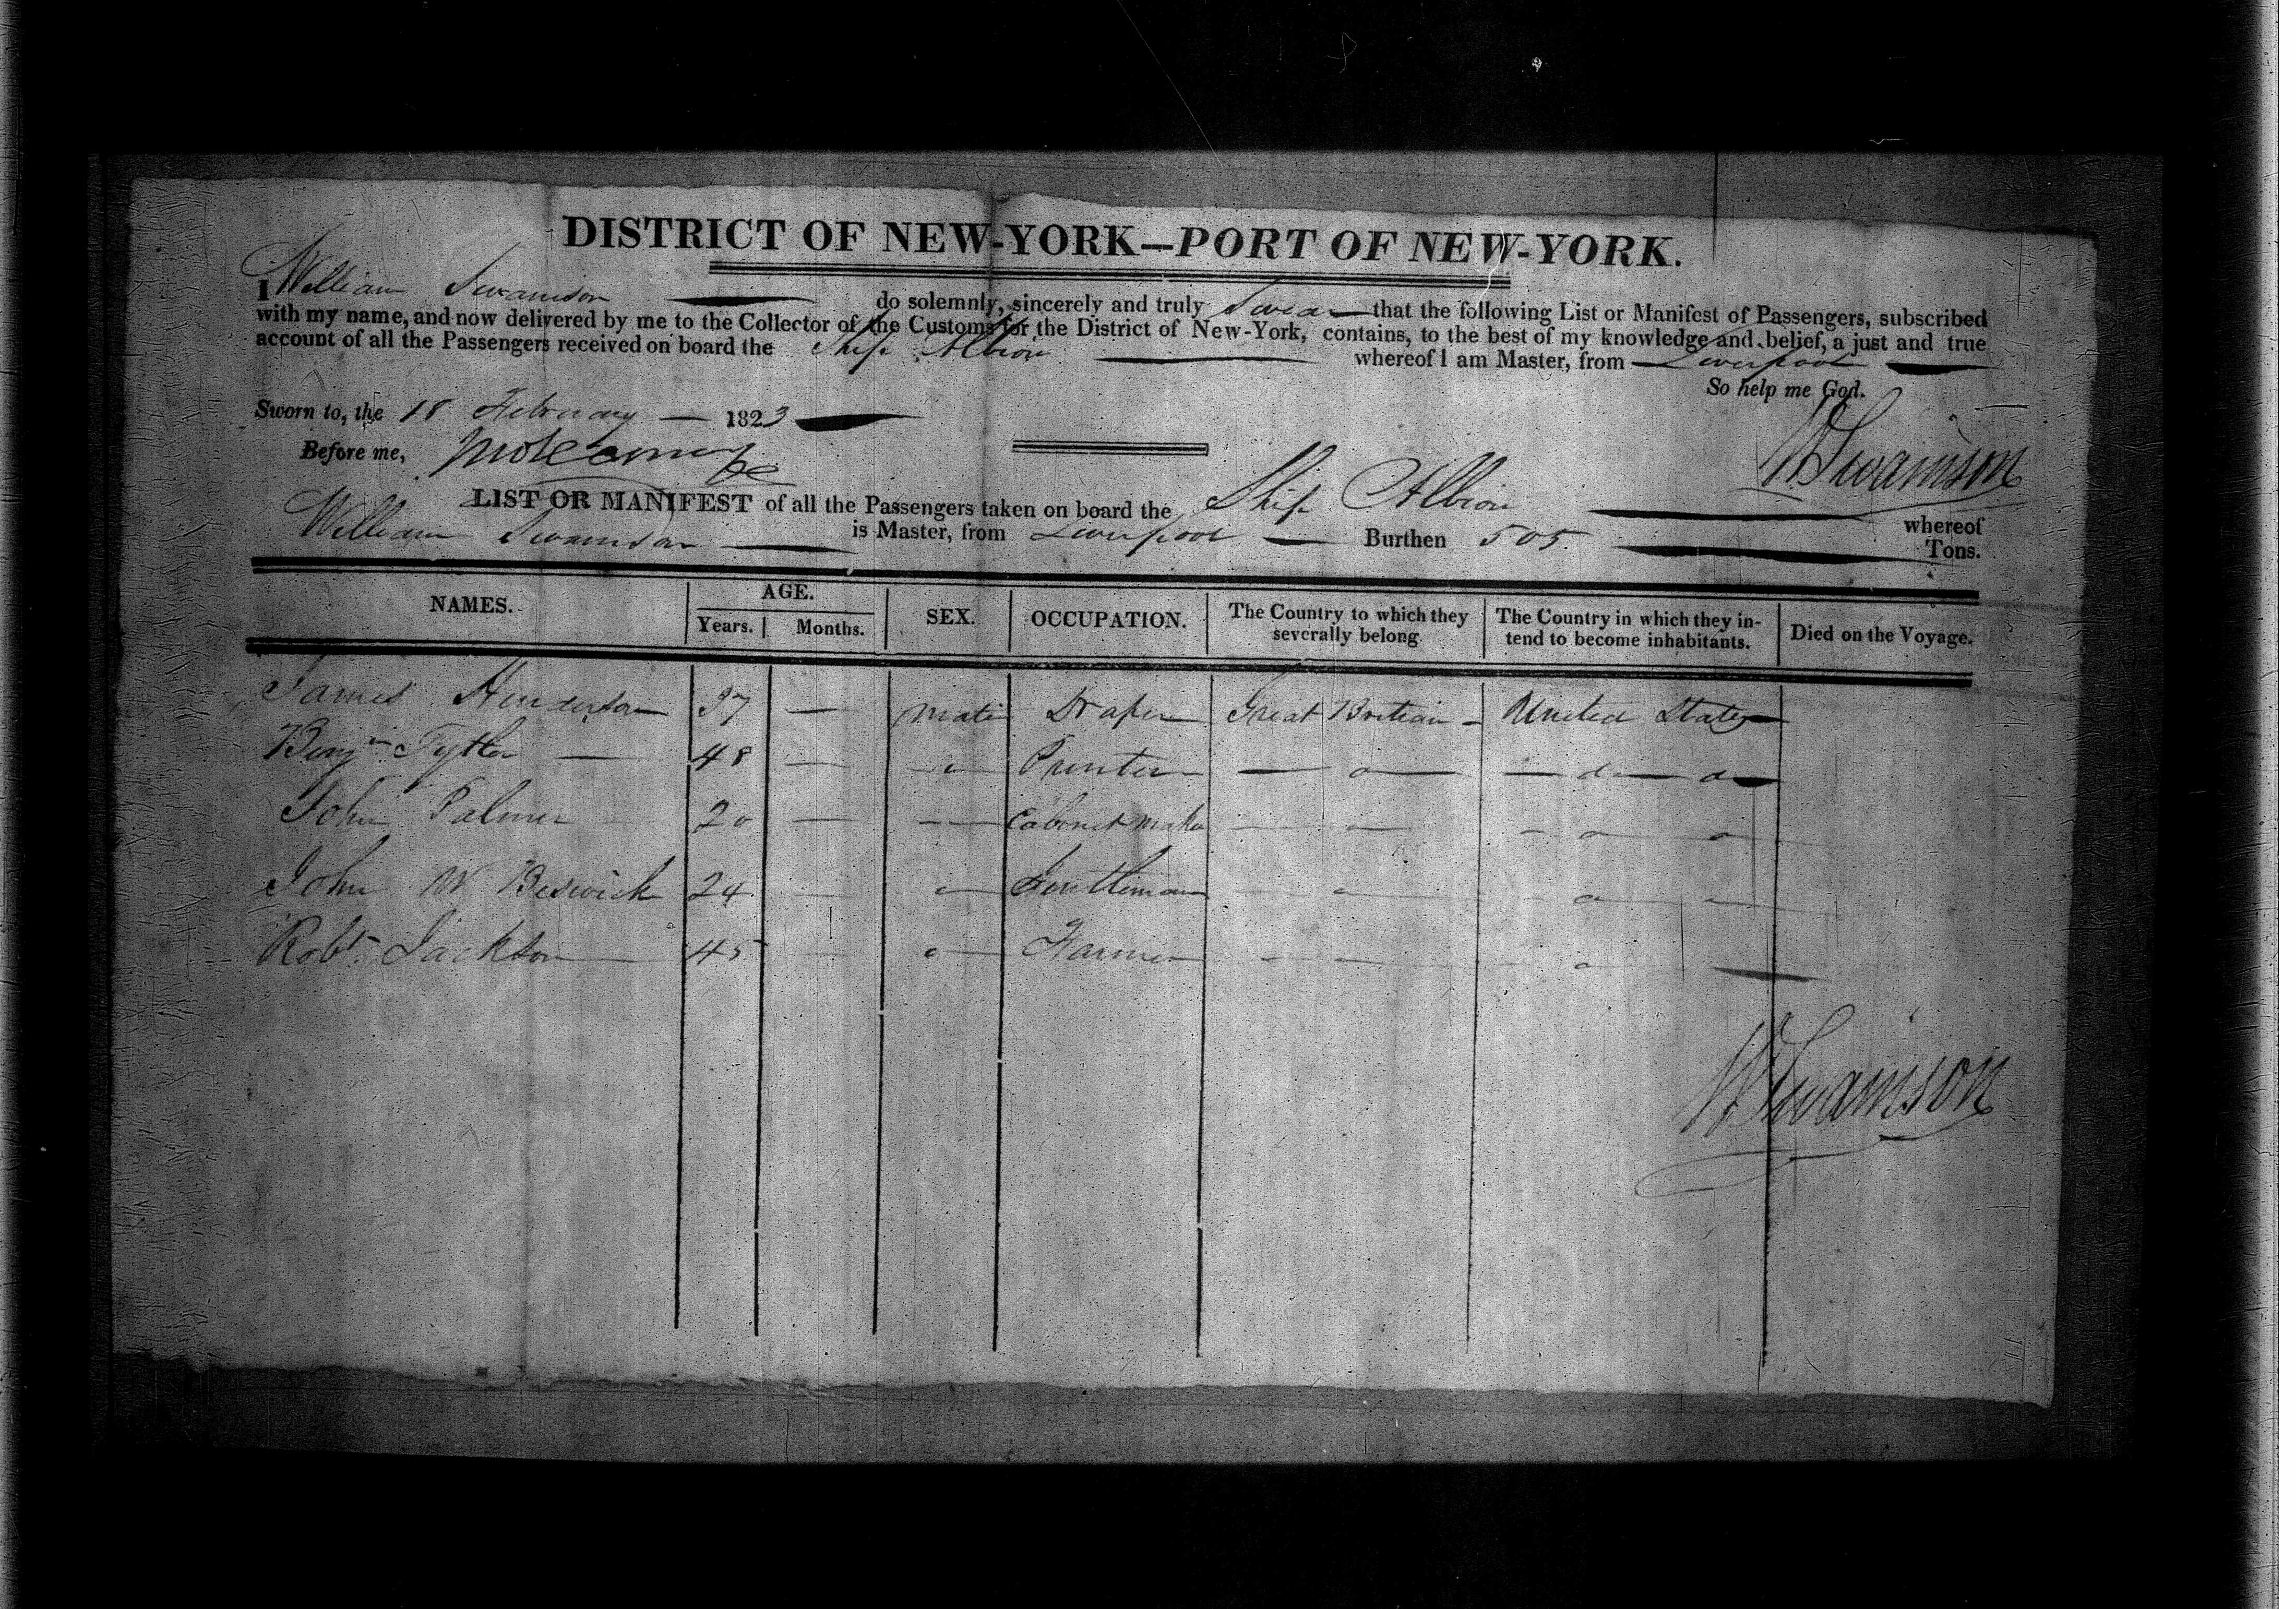 DISTRICT OF NEW-YORK—PORT OF NEW-YORK.
I William Swainson do solemnly, sincerely and truly Swear that the following List or Manifest of Passengers, subscribed
with my name, and now delivered by me to the Collector of the Customs for the District of New-York, contains, to the best of my knowledge and belief, a just and true
account of all the Passengers received on board the Ship Albion whereof I am Master, from Liverpool
So help me God.
Sworn to, the 18 February 1823
W Swainson
Before me,
LIST OR MANIFEST of all the Passengers taken on board the Ship Albion whereof
William Swainson is Master, from Liverpool Burthen 505 Tons.
NAMES. AGE. Years. Months. SEX. OCCUPATION. The Country to which they severally belong The Country in which they intend to become inhabitants. Died on the Voyage.
James Henderson 37 — Male Draper Great Britian United States
Benjn Tytler 48 — Printer
John Palmer 20 — Cabinet Maker
John W Beswick 24 — Gentleman
Robt Jackson 45 — Farmer
W Swainson